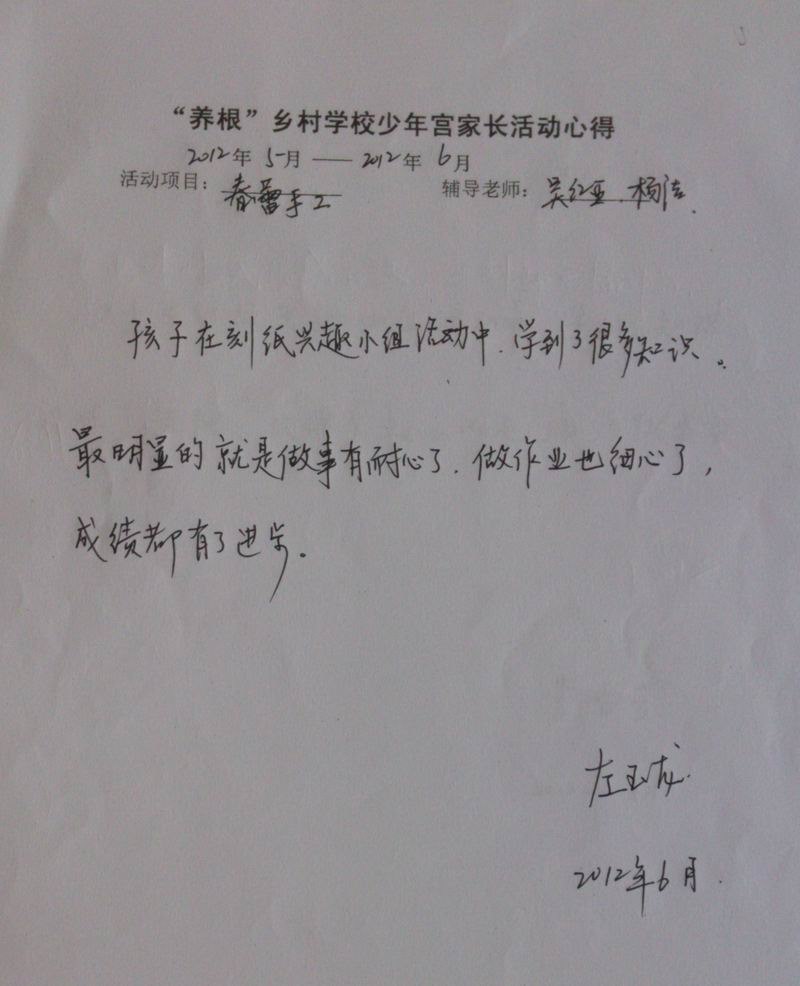 “养根”乡村学校少年宫家长活动心得
2012年5月——2012年6月
活动项目：春蕾手工 辅导老师：吴红亚、杨洁.
孩子在刻纸兴趣小组活动中、学到了很多知识。
最明显的就是做事有耐心了、做作业也细心了，
成绩都有了进步。
左玉龙.
2012年6月.